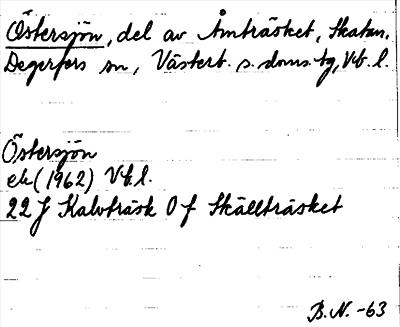 Östersjön, del av Åmträsket, Skatan,
Degerfors sn, Västerb. s. doms. tg, Vb. l.
Östersjön
ek (1962) Vb. l.
22 J Kalvträsk 0 f Skällträsket
B. N. -63